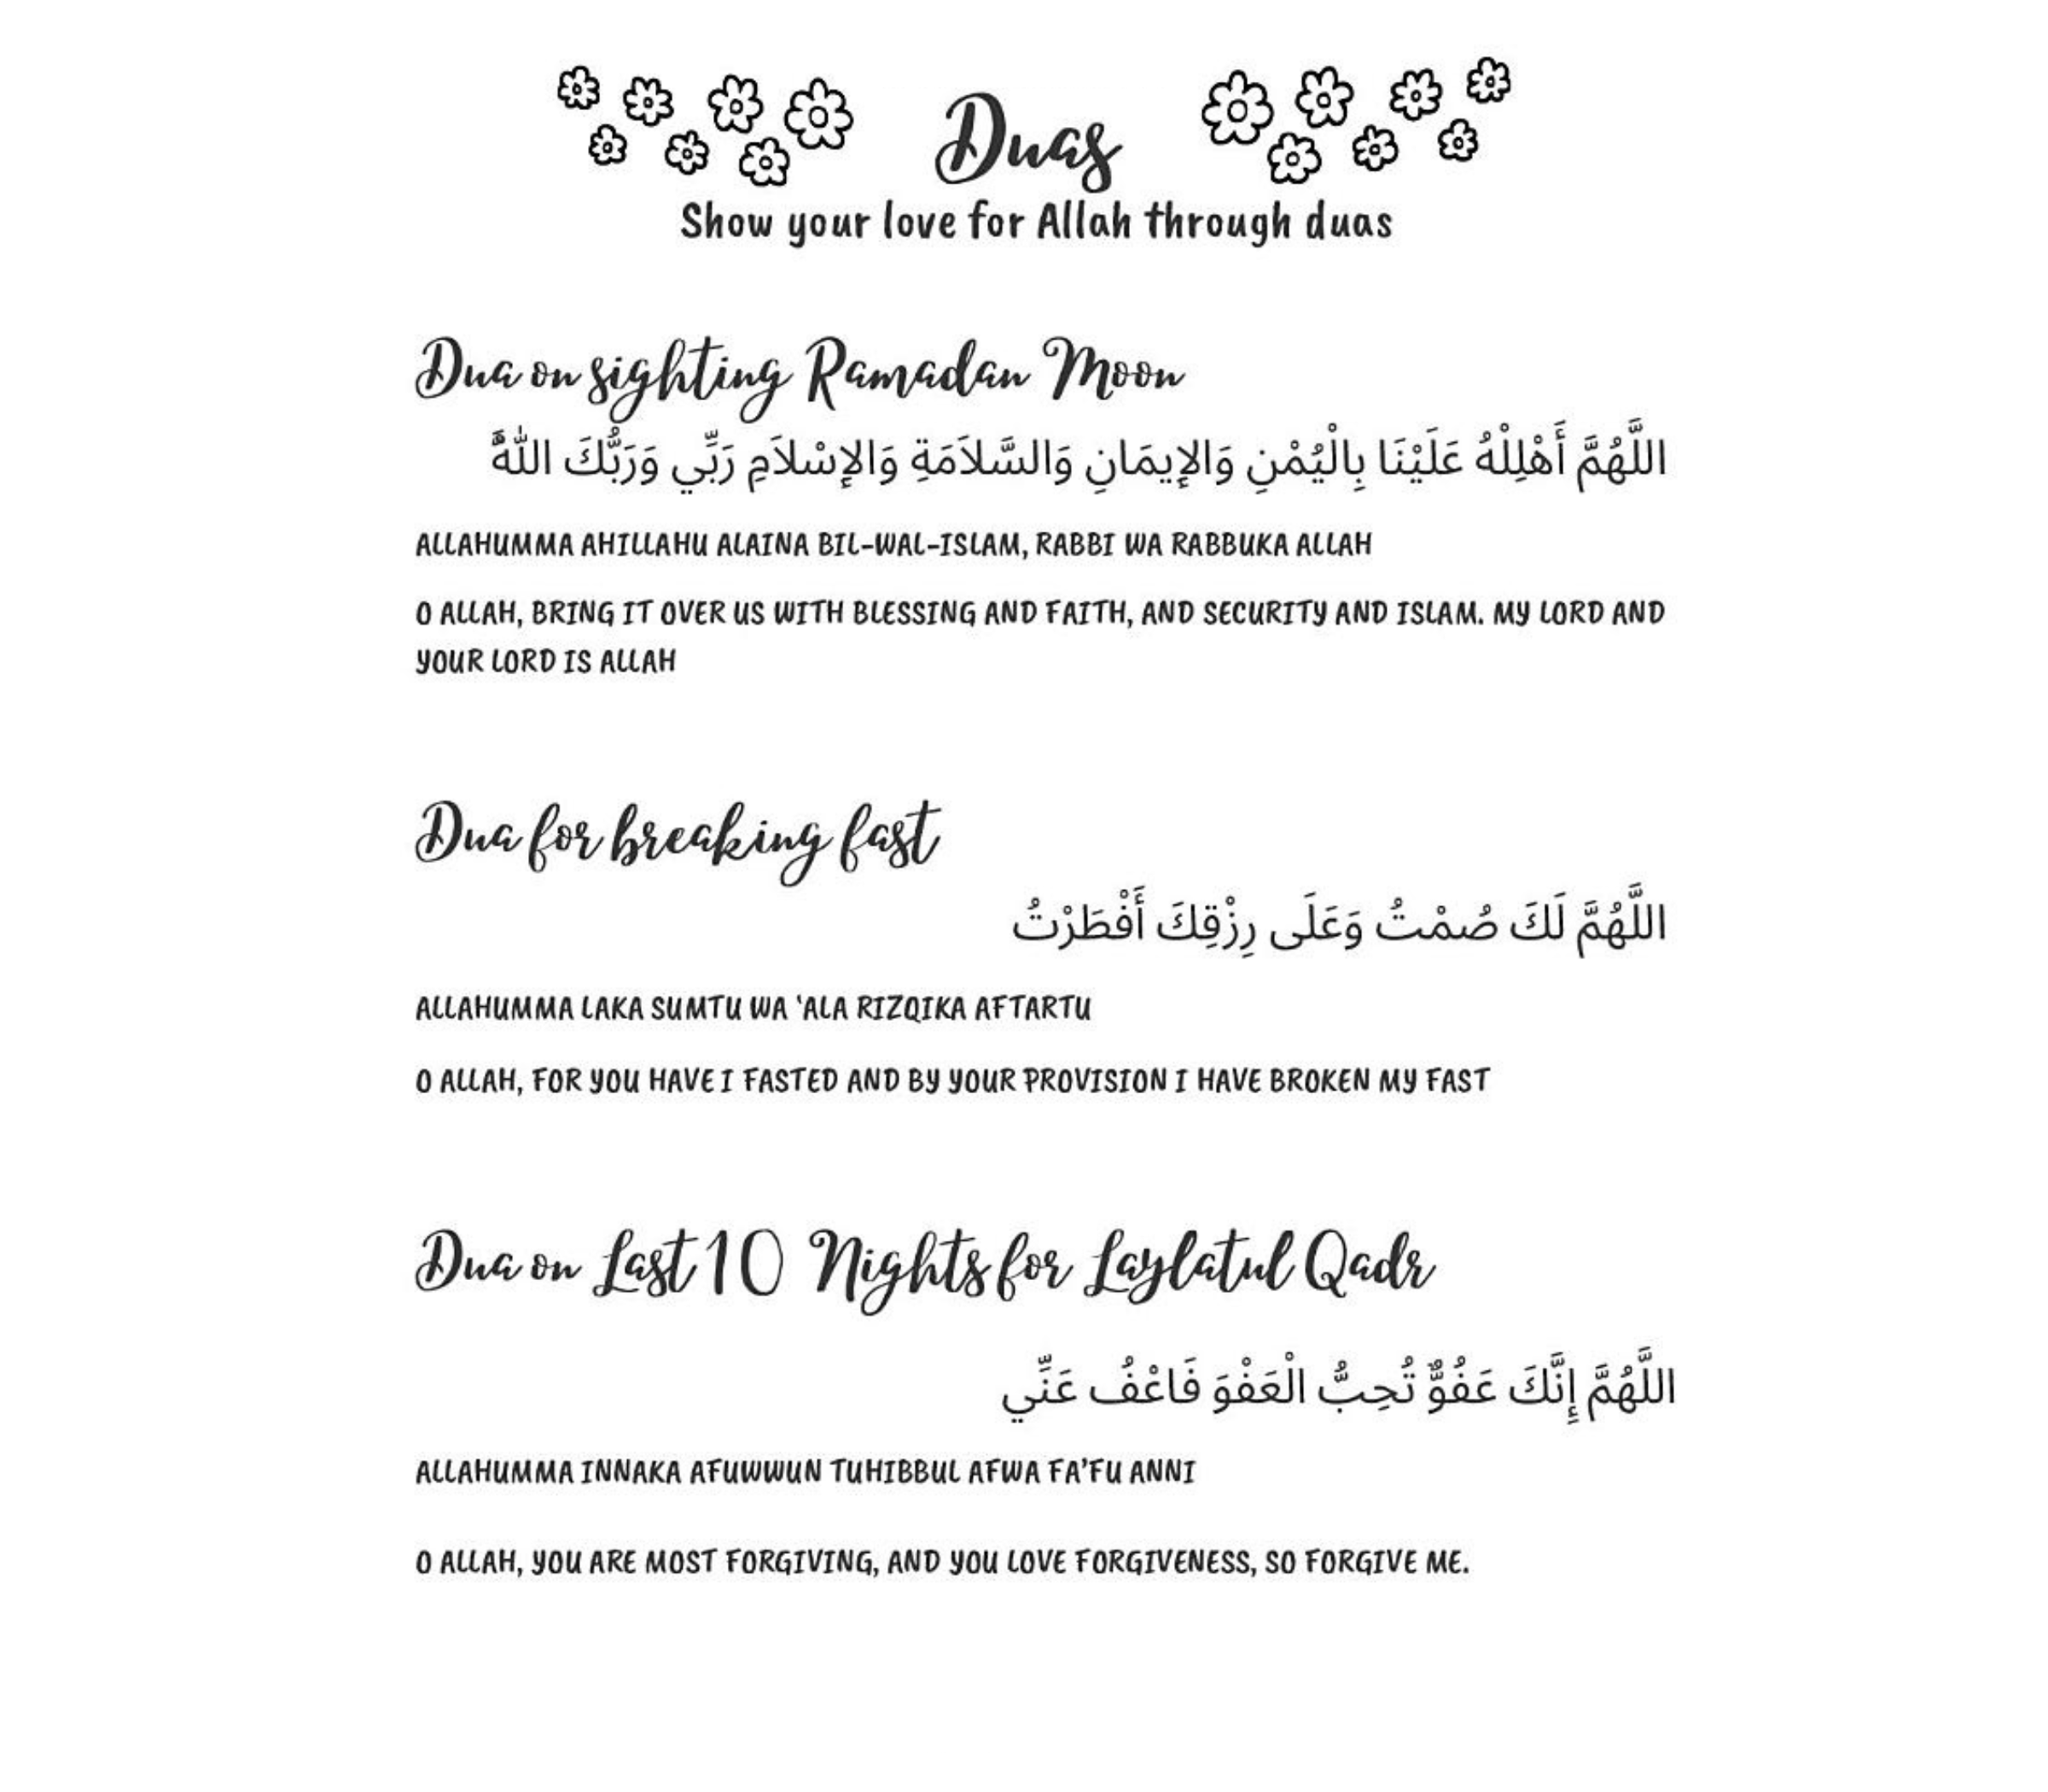 Duas
Show your love for Allah through duas
Dua on sighting Ramadan Moon
اللَّهُمَّ أَهْلِلْهُ عَلَيْنَا بِالْيُمْنِ وَالإِيمَانِ وَالسَّلاَمَةِ وَالإِسْلاَمِ رَبِّي وَرَبُّكَ اللَّهُ
ALLAHUMMA AHILLAHU ALAINA BIL-WAL-ISLAM, RABBI WA RABBUKA ALLAH
O ALLAH, BRING IT OVER US WITH BLESSING AND FAITH, AND SECURITY AND ISLAM. MY LORD AND
YOUR LORD IS ALLAH
Dua for breaking fast
اللَّهُمَّ لَكَ صُمْتُ وَعَلَى رِزْقِكَ أَفْطَرْتُ
ALLAHUMMA LAKA SUMTU WA 'ALA RIZQIKA AFTARTU
O ALLAH, FOR YOU HAVE I FASTED AND BY YOUR PROVISION I HAVE BROKEN MY FAST
Dua on Last 10 Nights for Laylatul Qadr
اللَّهُمَّ إِنَّكَ عَفُوٌّ تُحِبُّ الْعَفْوَ فَاعْفُ عَنِّي
ALLAHUMMA INNAKA AFUWWUN TUHIBBUL AFWA FA'FU ANNI
O ALLAH, YOU ARE MOST FORGIVING, AND YOU LOVE FORGIVENESS, SO FORGIVE ME.